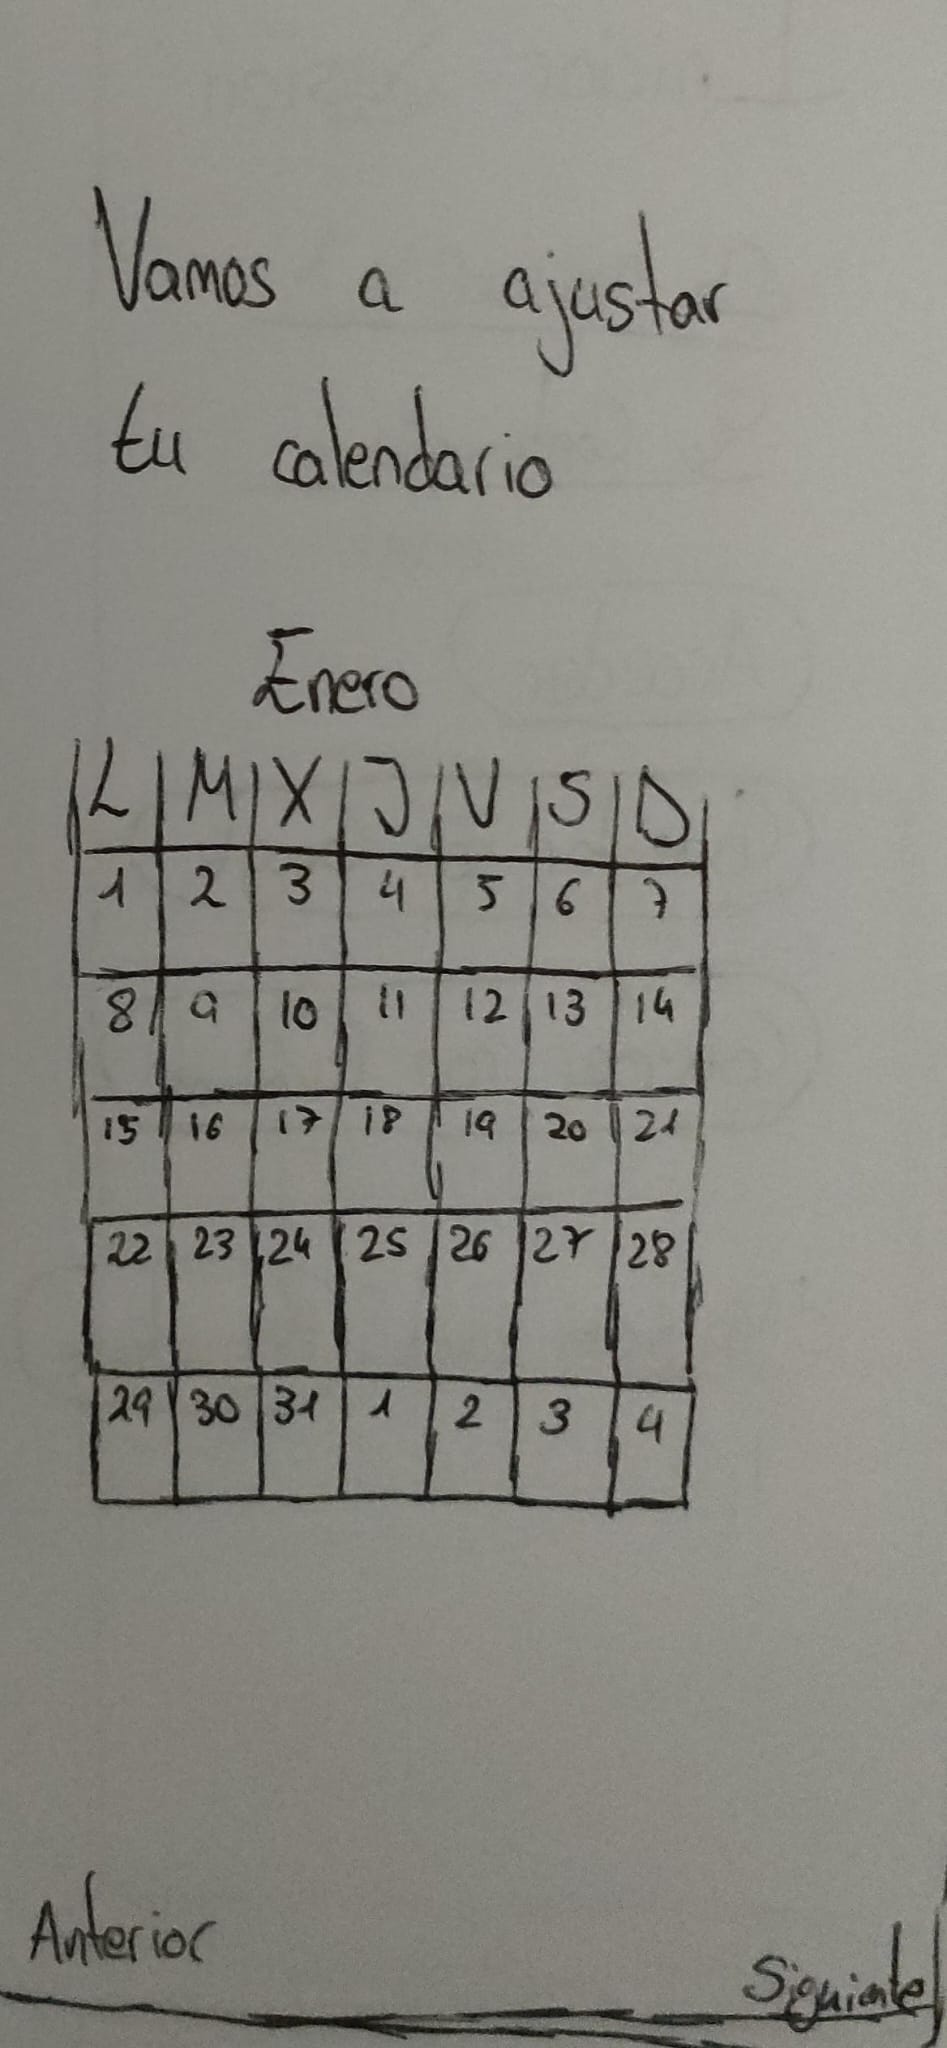 Vamos a ajustar
tu calendario
Enero
L M X J V S D
1 2 3 4 5 6 7
8 9 10 11 12 13 14
15 16 17 18 19 20 21
22 23 24 25 26 27 28
29 30 31 1 2 3 4
Anterior
Siguiente